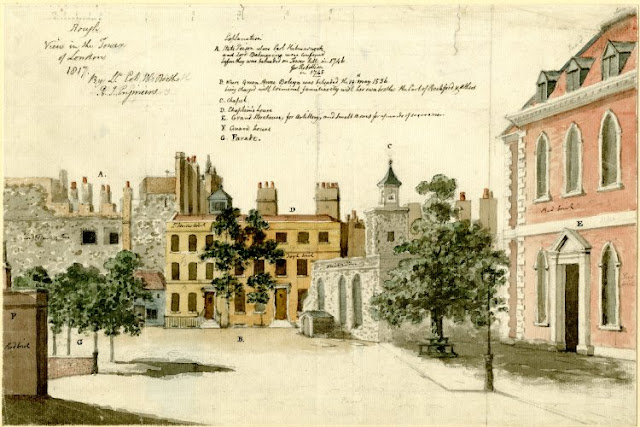 Rough
View in the Tower
of London
1817
By Lt. Col.
R. Engineers
Explanation
A. State Prison where Earl Kilmarnock
and Lord Balmerino were confined
before they were beheaded on Tower Hill in 1746
for Rebellion
in 1745
B. Where Queen Anna Boleyn was beheaded the 19th May 1536
being charged with criminal familiarity with her own brother the Earl of Rochford & others
C. Chapel
D. Chaplain's house
E. Grand Storehouse, for Artillery, and Small Arms for upwards of
F. Guard house
G. Parade.
A.
C
D
E
F
G
B.
Red brick
Red brick